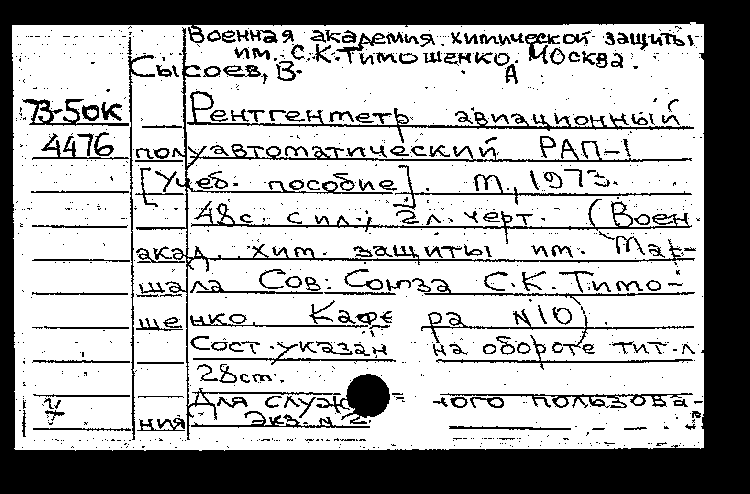 Военная академия химической защиты
им. С.К. Тимошенко. Москва.
Сысоев, В. А
73-50к Рентгентетр авиационный
4476 полуавтоматический РАП-1
[Учеб. пособие]. М., 1973.
48с. с ил.; 2л. черт. (Воен.
акад. хим. защиты им. Мар-
шала Сов. Союза С.К. Тимо-
шенко. Кафе ра N10).
Сост. указан на обороте тит. л.
28ст.
Для служ ного пользова-
ния. Экз. N 2